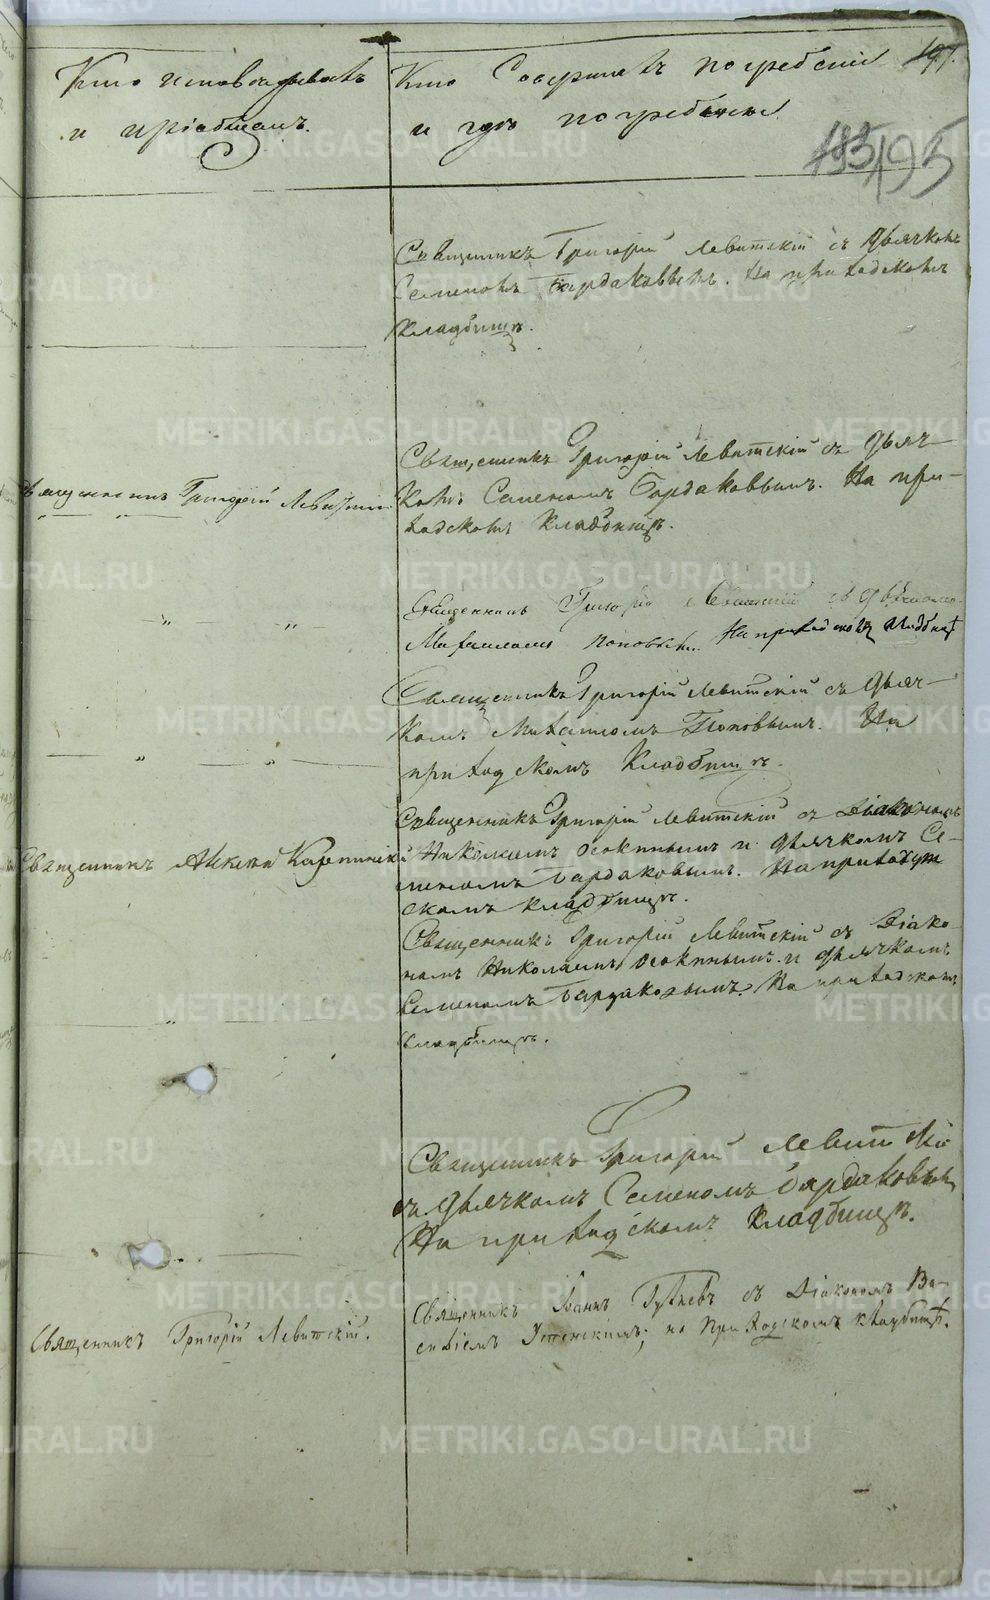 Кто исповѣдывалъ
и пріобщалъ.
Кто совершалъ погребеніе
и гдѣ погребены
191.
193/195
Священникъ Григорій Левитскій съ Дьячкомъ
Семеномъ Бардаковымъ. На приходскомъ
кладбищѣ.
Священникъ Григорій Левитскій
Священникъ Григорій Левитскій съ Дьяч-
комъ Семеномъ Бардаковымъ. На при-
ходскомъ кладбищѣ.
Священникъ Григорій Левитскій съ Дьячкомъ
Михаиломъ Поповымъ. На приходскомъ кладбищѣ
Священникъ Григорій Левитскій съ Дьяч-
комъ Михаиломъ Поповымъ. На
приходскомъ кладбищѣ.
Священникъ
Священникъ Григорій Левитскій съ Діакономъ
Николаемъ Осокинымъ и Дьячкомъ Се-
меномъ Бардаковымъ. На приход-
скомъ кладбищѣ.
Священникъ Григорій Левитскій съ Діако-
номъ Николаемъ Осокинымъ и Дьячкомъ
Семеномъ Бардаковымъ. На приходскомъ
кладбищѣ.
Священникъ Григорій Левитскій
съ Дьячкомъ Семеномъ Бардаковымъ
На приходскомъ кладбищѣ.
Священникъ Григорій Левитскій.
Священникъ Іоаннъ съ Діакономъ Ва-
силіемъ Успенскимъ; на приходскомъ кладбищѣ.
METRIKI.GASO-URAL.RU